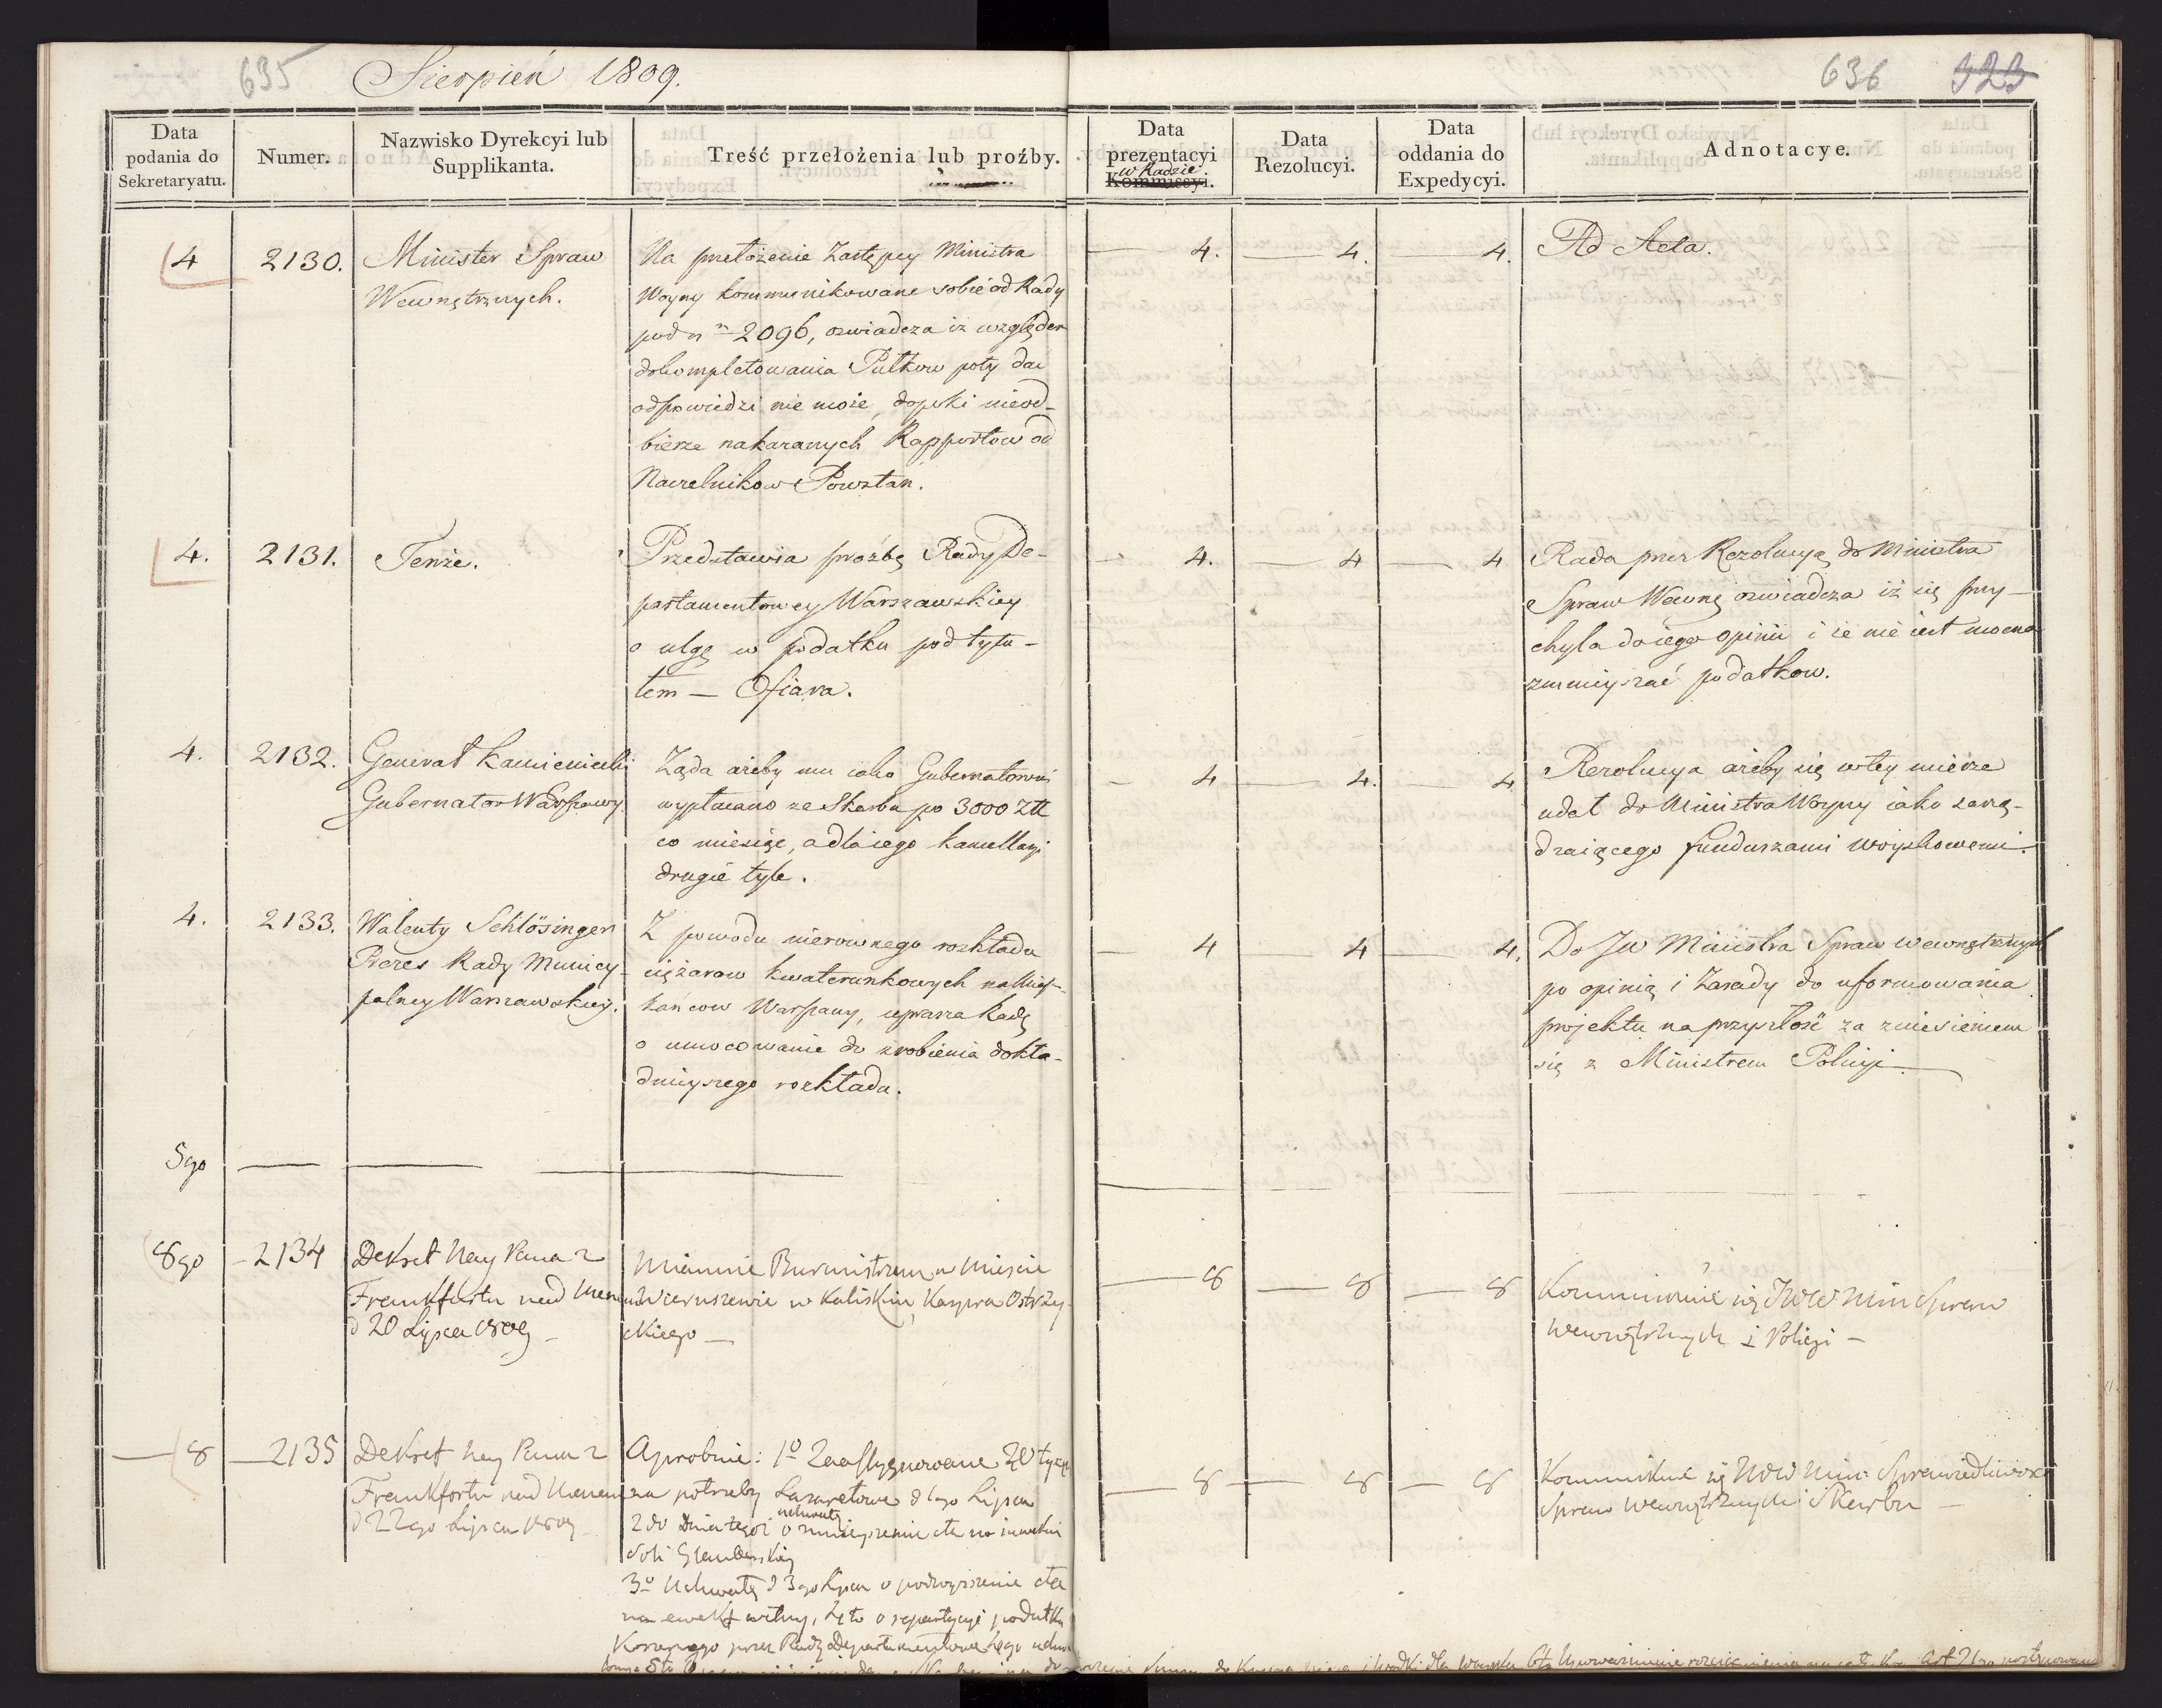 635
Sierpień 1809.
636 323
Data podania do Sekretaryatu.
Numer.
Nazwisko Dyrekcyi lub Supplikanta.
Treść przełożenia lub proźby.
Data prezentacyi Kommissyi.
w Radzie
Data Rezolucyi.
Data oddania do Expedycyi.
Adnotacye.
4
2130.
Minister Spraw
Wewnętrznych.
Na przełożenie Zastępcy Ministra
Woyny kommunikowane sobie od Rady
pod n 2096, oswiadcza iż względem
dokompletowania Pułkow poty dac
odpowiedzi nie może, dopoki nieod-
bierze nakazanych Rapportow od
Naczelnikow Powstan.
4. 4. 4.
Ad Acta.
4.
2131.
Tenże.
Przedstawia proźbę Rady De-
partamentowey Warszawskiey
o ulgę w podatku pod tytu-
łem — Ofiara.
4. 4 4
Rada przez Rezolucyą do Ministra
Spraw Wewnę oswiadcza iż się przy-
chyla do iego opinii i że nie iest mocna
zmnieyszać podatkow.
4.
2132.
Generał Kamieniecki
Gubernator Warszawy.
Ząda ażeby mu iako Gubernatorowi
wypłacano ze Skarbu po 3000 Złł
co miesiąc, a dla iego kancellaryi
drugie tyle.
4 4. 4
Rezolucya ażeby się w tey mierze
udał do Ministra Woyny iako zarzą-
dzaiącego funduszami woyskowemi.
4.
2133.
Walenty Schlösinger
Prezes Rady Municy-
palney Warszawskiey.
Z powodu nierownego rozkładu
ciężarow kwaterunkowych na Miesz-
kańcow Warszawy, uprasza Radę
o umocowanie do zrobienia dokła-
dnieyszego rozkładu.
4 4 4.
Do JW Ministra Spraw wewnętrznych
po opinią i Zasady do uformowania
projektu na przyszłość za zniesieniem
się z Ministrem Policyi.
5go
8go
2134
Dekret Nay Pana z
Frankfortu nad Menem
d 20 Lipca 1809
Mianuie Burmistrzem w Miescie
Wieruszewie w Kaliskim, Kaspra Ostrzy-
ckiego —
8 8 8
Kommunikuie się JWW Min Spraw
wewnętrznych i Policyi —
8
2135
Dekret Nay Pana z
Frankfortu nad Menem
d 22go Lipca 1809
Aprobuie: 1º Zaassygnowane 20 tysię
na potrzeby Lazaretowe d 1go Lipca
2do Dnia tegoż uchwałę o zmnieyszenie cła na
soli
3º Uchwałę d 3go Lipca o podwyższenie cła
na, 4to o repartycyi podatku
przez Radę Departamentową
8 8 8
Kommunikuie się JWW Min: Sprawiedliwości
Spraw wewnętrznych i Skarbu —